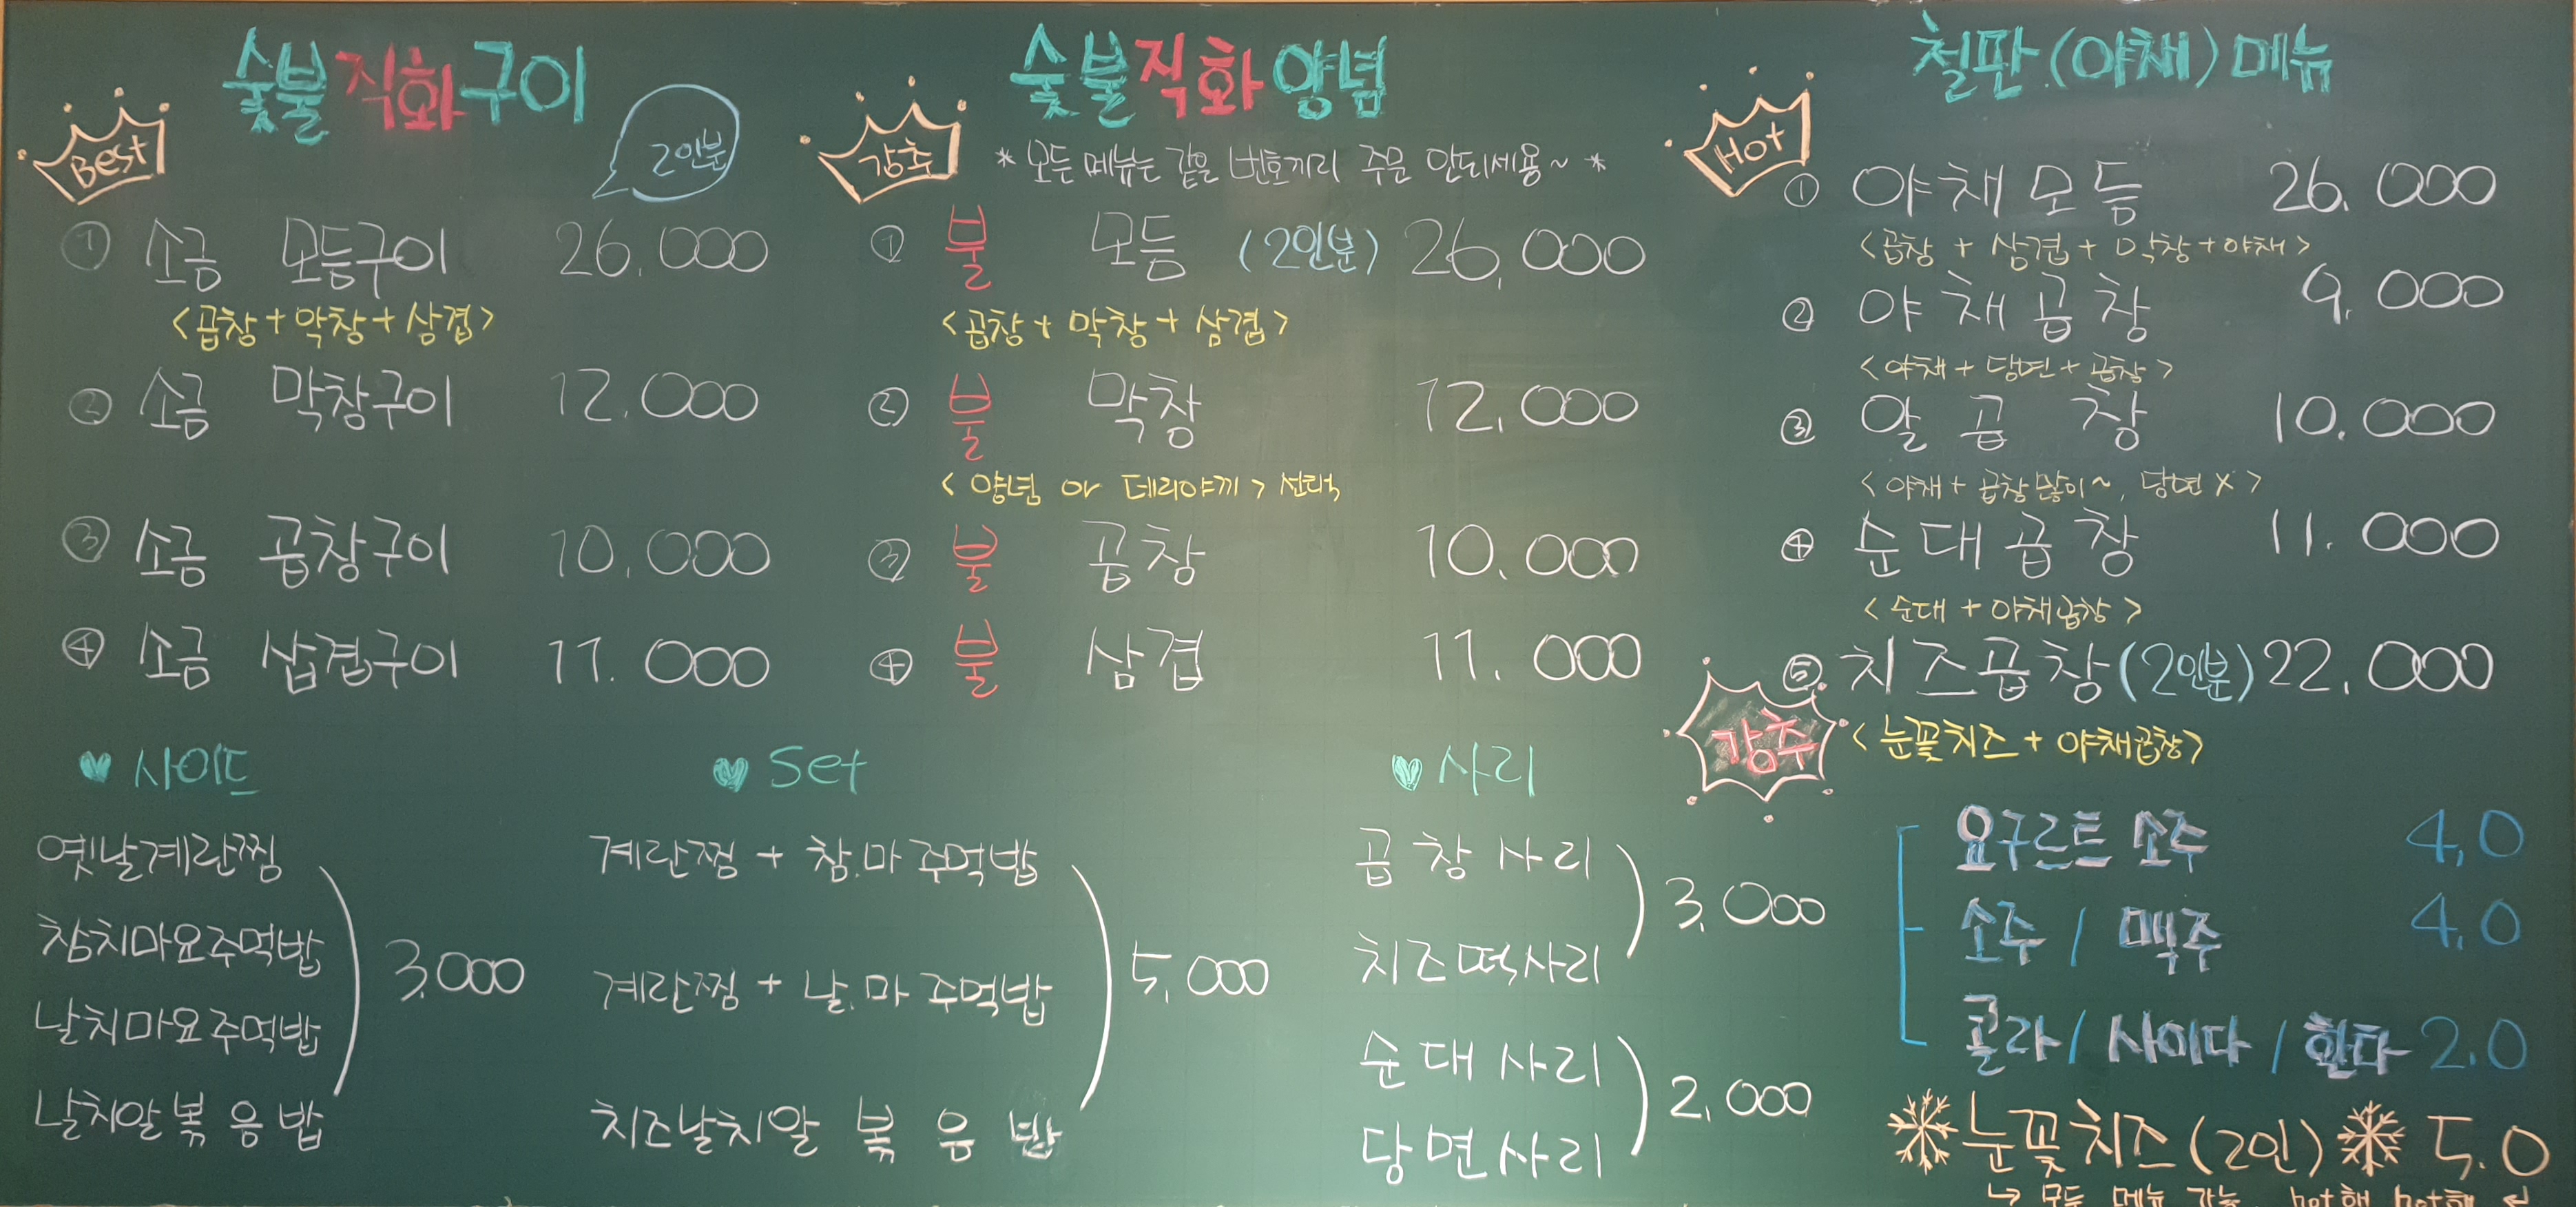 숯불직화구이
Best
2인분
① 소금 모듬구이 26.000
<곱창+막창+삼겹>
② 소금 막창구이 12.000
③ 소금 곱창구이 10.000
④ 소금 삽겹구이 11.000
숯불직화양념
강추
* 모든 메뉴는 같은 번호끼리 주문 안되세용~ *
① 불 모듬 (2인분) 26,000
<곱창+막창+삼겹>
② 불 막창 12.000
<양념 or 데리야끼> 선택
③ 불 곱창 10.000
④ 불 삼겹 11.000
철판(야채)메뉴
Hot
① 야채모듬 26.000
<곱창+삼겹+막창+야채>
② 야채곱창 9.000
<야채+당면+곱창>
③ 알곱창 10.000
<야채+곱창많이~, 당면X>
④ 순대곱창 11.000
<순대+야채곱창>
⑤ 치즈곱창(2인분) 22.000
강추
<눈꽃치즈+야채곱창>
♥ 사이드
옛날계란찜
참치마요주먹밥
날치마요주먹밥
날치알볶음밥
3.000
♥ Set
계란찜 + 참.마 주먹밥
계란찜 + 날.마 주먹밥
치즈날치알 볶음밥
5,000
♥ 사리
곱창사리
치즈떡사리
3,000
순대사리
당면사리
2,000
요구르트 소주 4,0
소주 / 맥주 4.0
콜라 / 사이다 / 환타 2.0
눈꽃치즈(2인) 5.0
↳ 모든 메뉴 가능